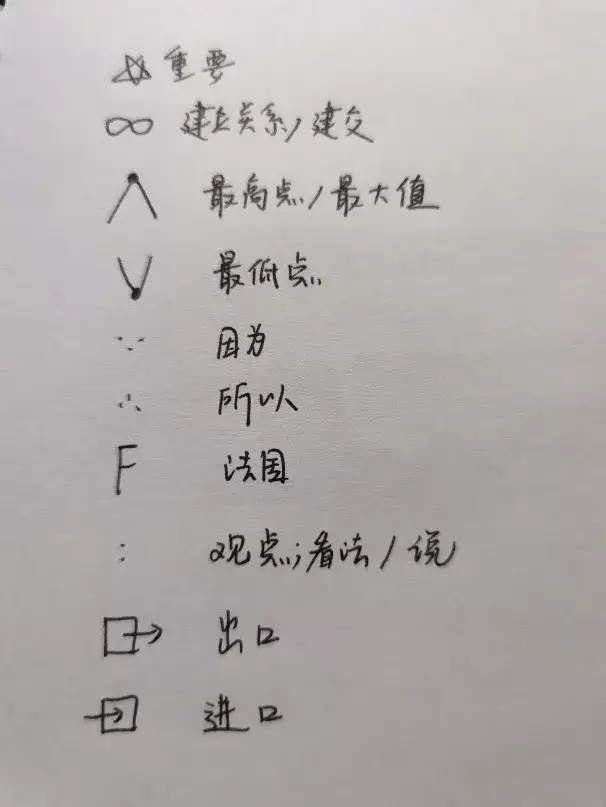 ☆ 重要
∞ 建立关系/建交
最高点/最大值
最低点
∵ 因为
∴ 所以
F 法国
: 观点;看法/说
出口
进口